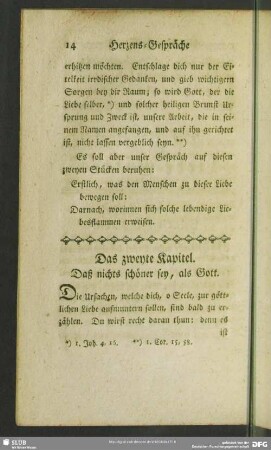 14 Herzens-Gespräche
erhitzen möchten. Entschlage dich nur der Ei-
telkeit irrdischer Gedanken, und gieb wichtigern
Sorgen bey dir Raum; so wird Gott, der die
Liebe selber, *) und solcher heiligen Brunst Ur-
sprung und Zweck ist, unsere Arbeit, die in sei-
nem Namen angefangen, und auf ihn gerichtet
ist, nicht lassen vergeblich seyn. **)
Es soll aber unser Gespräch auf diesen
zweyen Stücken beruhen:
Erstlich, was den Menschen zu dieser Liebe
bewegen soll:
Darnach, worinnen sich solche lebendige Lie-
besflammen erweisen.
Das zweyte Kapitel.
Daß nichts schöner sey, als Gott.
Die Ursachen, welche dich, o Seele, zur gött-
lichen Liebe aufmuntern sollen, sind bald zu er-
zählen. Du wirst recht daran thun: denn es
ist
*) 1. Joh. 4. 16. **) 1. Cor. 15, 58.
SLUB
Wir führen Wissen.
gefördert von der
Deutschen Forschungsgemeinschaft
DFG